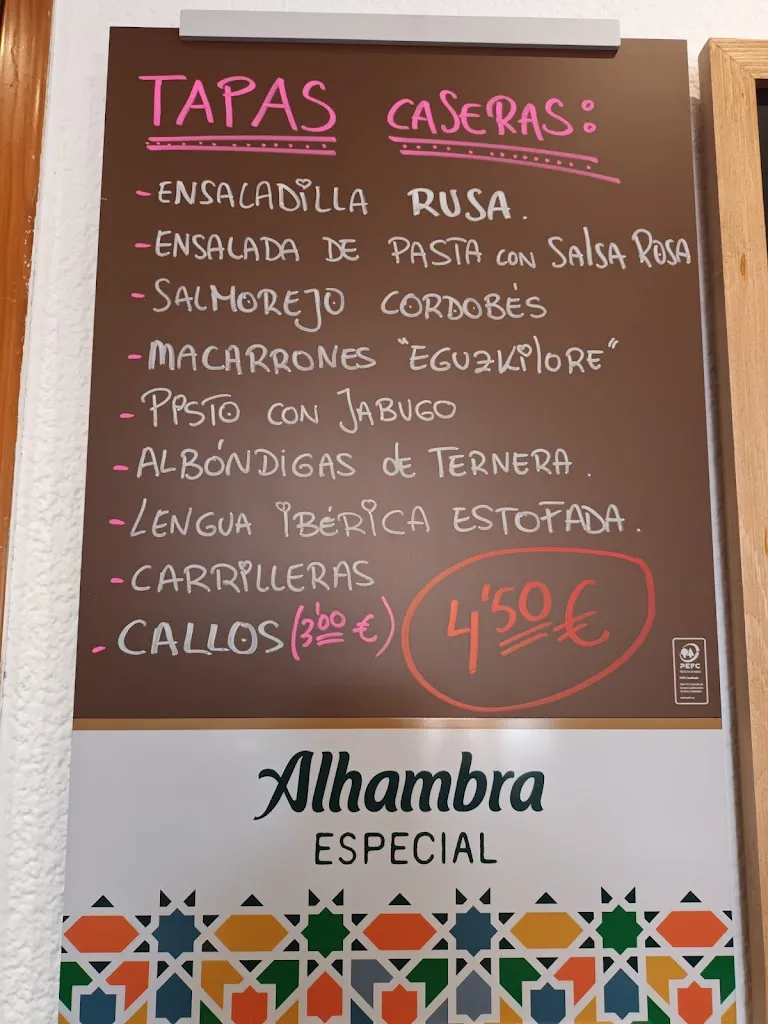 TAPAS CASERAS:
-ENSALADILLA RUSA.
-ENSALADA DE PASTA CON SALSA ROSA
-SALMOREJO CORDOBÉS
-MACARRONES "EGUZKILORE"
-PISTO CON JABUGO
-ALBÓNDIGAS de TERNERA.
-LENGUA IBÉRICA ESTOFADA.
-CARRILLERAS
-CALLOS (3'00 €)
4'50 €
PEFC
Alhambra
ESPECIAL